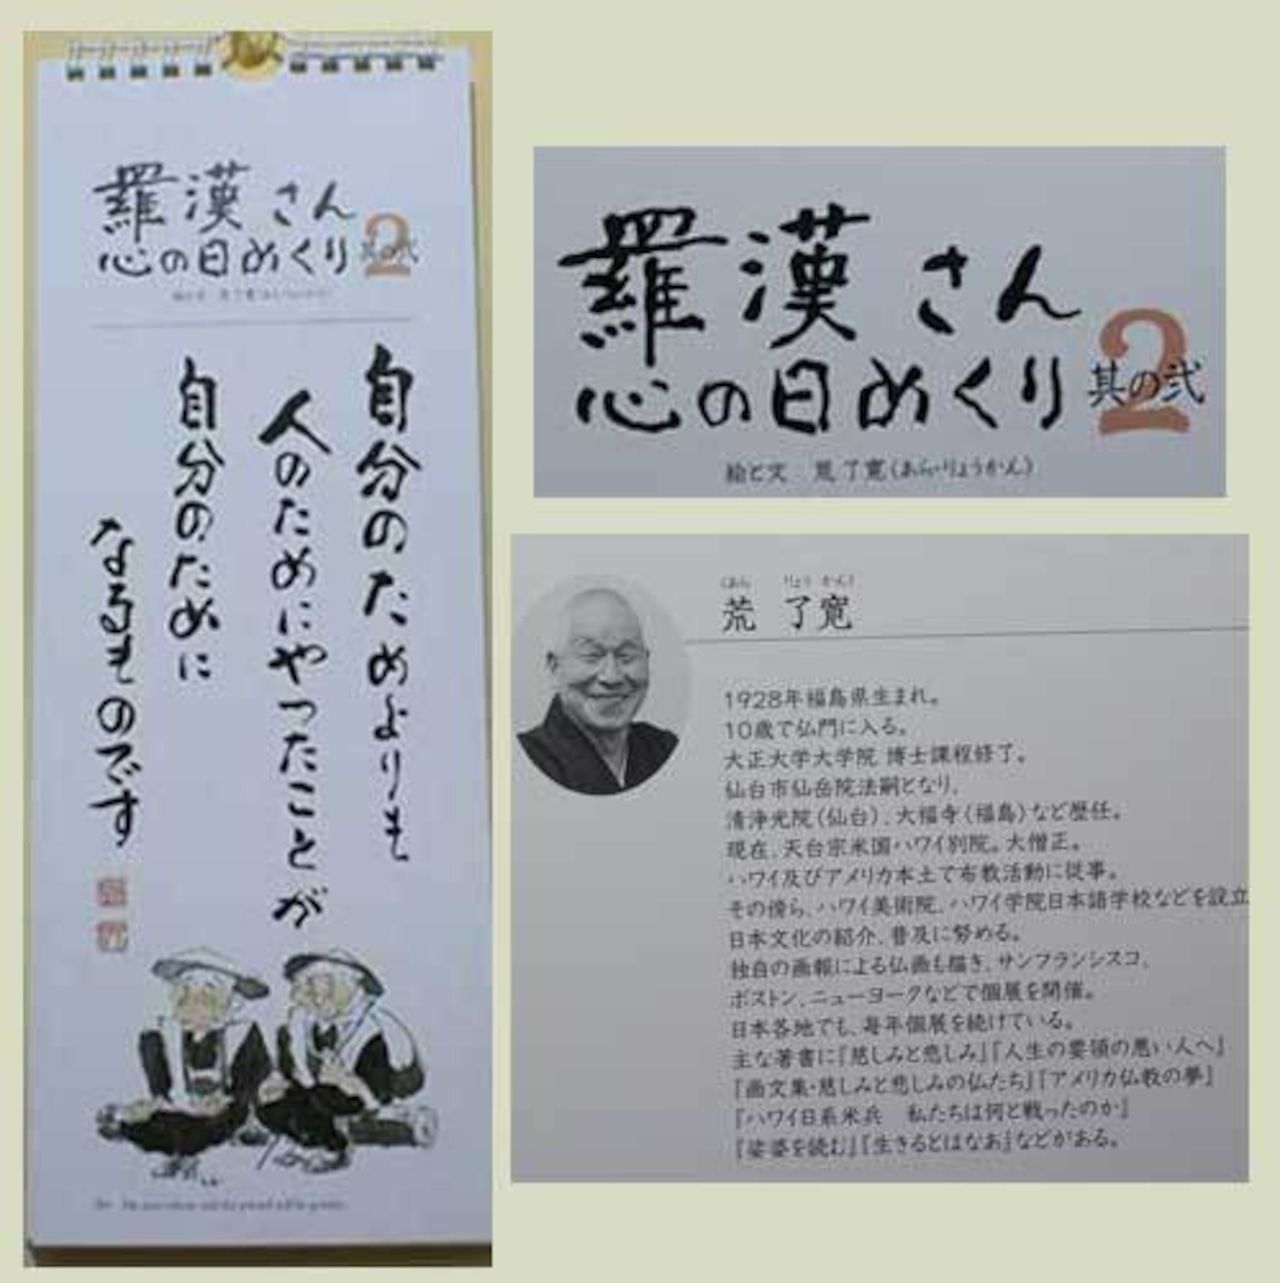 羅漢さん
心の日めくり 2
其の弐
自分のためよりも
人のためにやったことが
自分のために
なるものです
羅漢さん
心の日めくり 2
其の弐
絵と文 荒 了寛(あら・りょうかん)
(あら りょう かん)
荒 了寛
1928年福島県生まれ。
10歳で仏門に入る。
大正大学大学院 博士課程修了。
仙台市仙岳院法嗣となり、
清浄光院(仙台)、大福寺(福島)など歴任。
現在、天台宗米国ハワイ別院。大僧正。
ハワイ及びアメリカ本土で布教活動に従事。
その傍ら、ハワイ美術院、ハワイ学院日本語学校などを設立
日本文化の紹介、普及に努める。
独自の画報による仏画も描き、サンフランシスコ、
ボストン、ニューヨークなどで個展を開催。
日本各地でも、毎年個展を続けている。
主な著書に『慈しみと悲しみ』『人生の要領の悪い人へ』
『画文集・慈しみと悲しみの仏たち』『アメリカ仏教の夢』
『ハワイ日系米兵 私たちは何と戦ったのか』
『娑婆を読む』『生きるとはなあ』などがある。